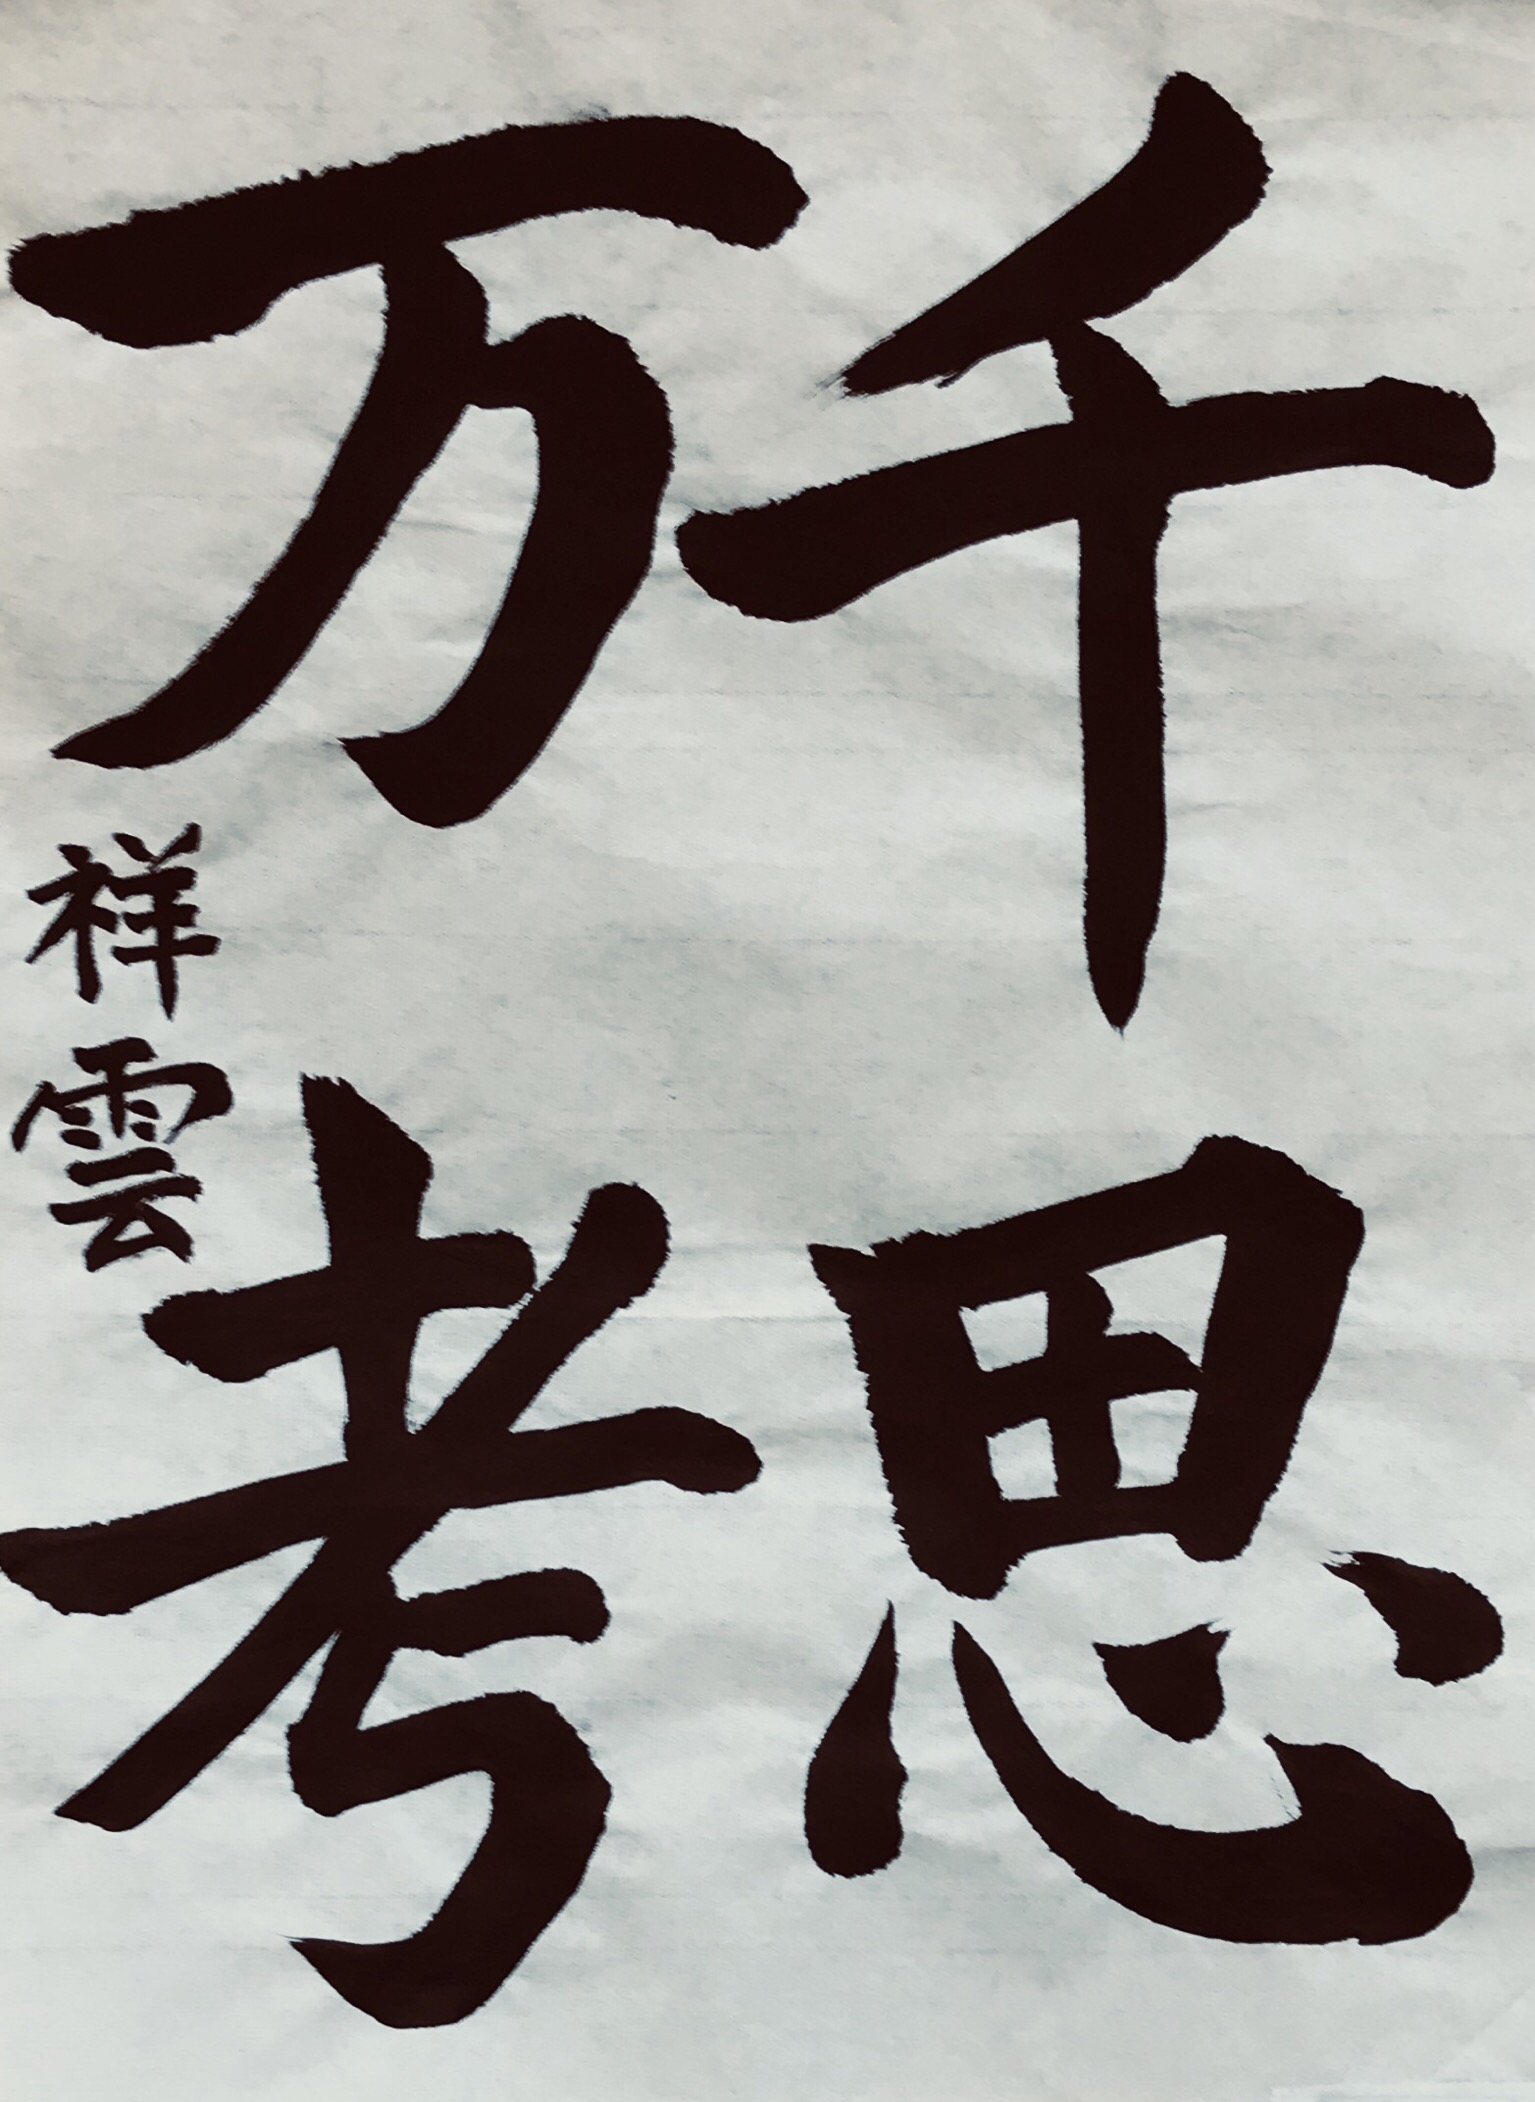 千思
万考
祥雲